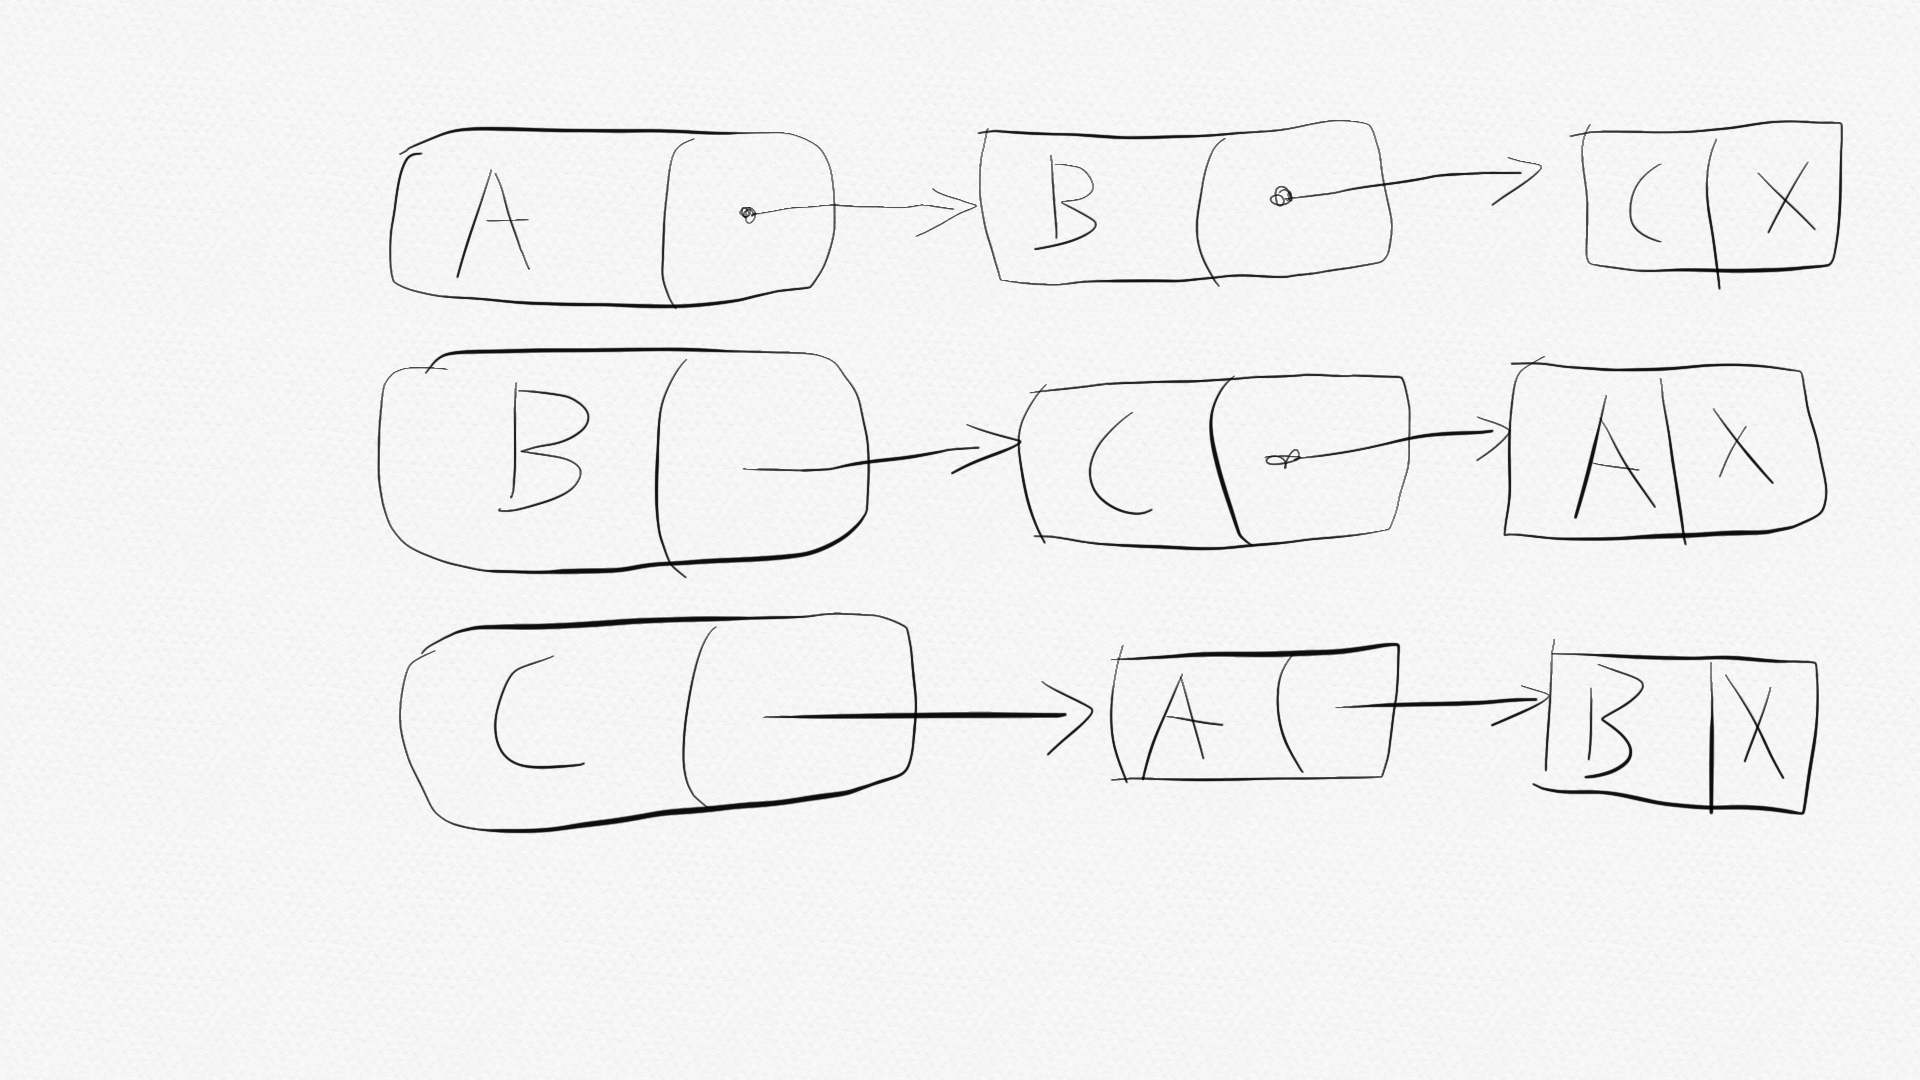 A B C X
B C A X
C A B X